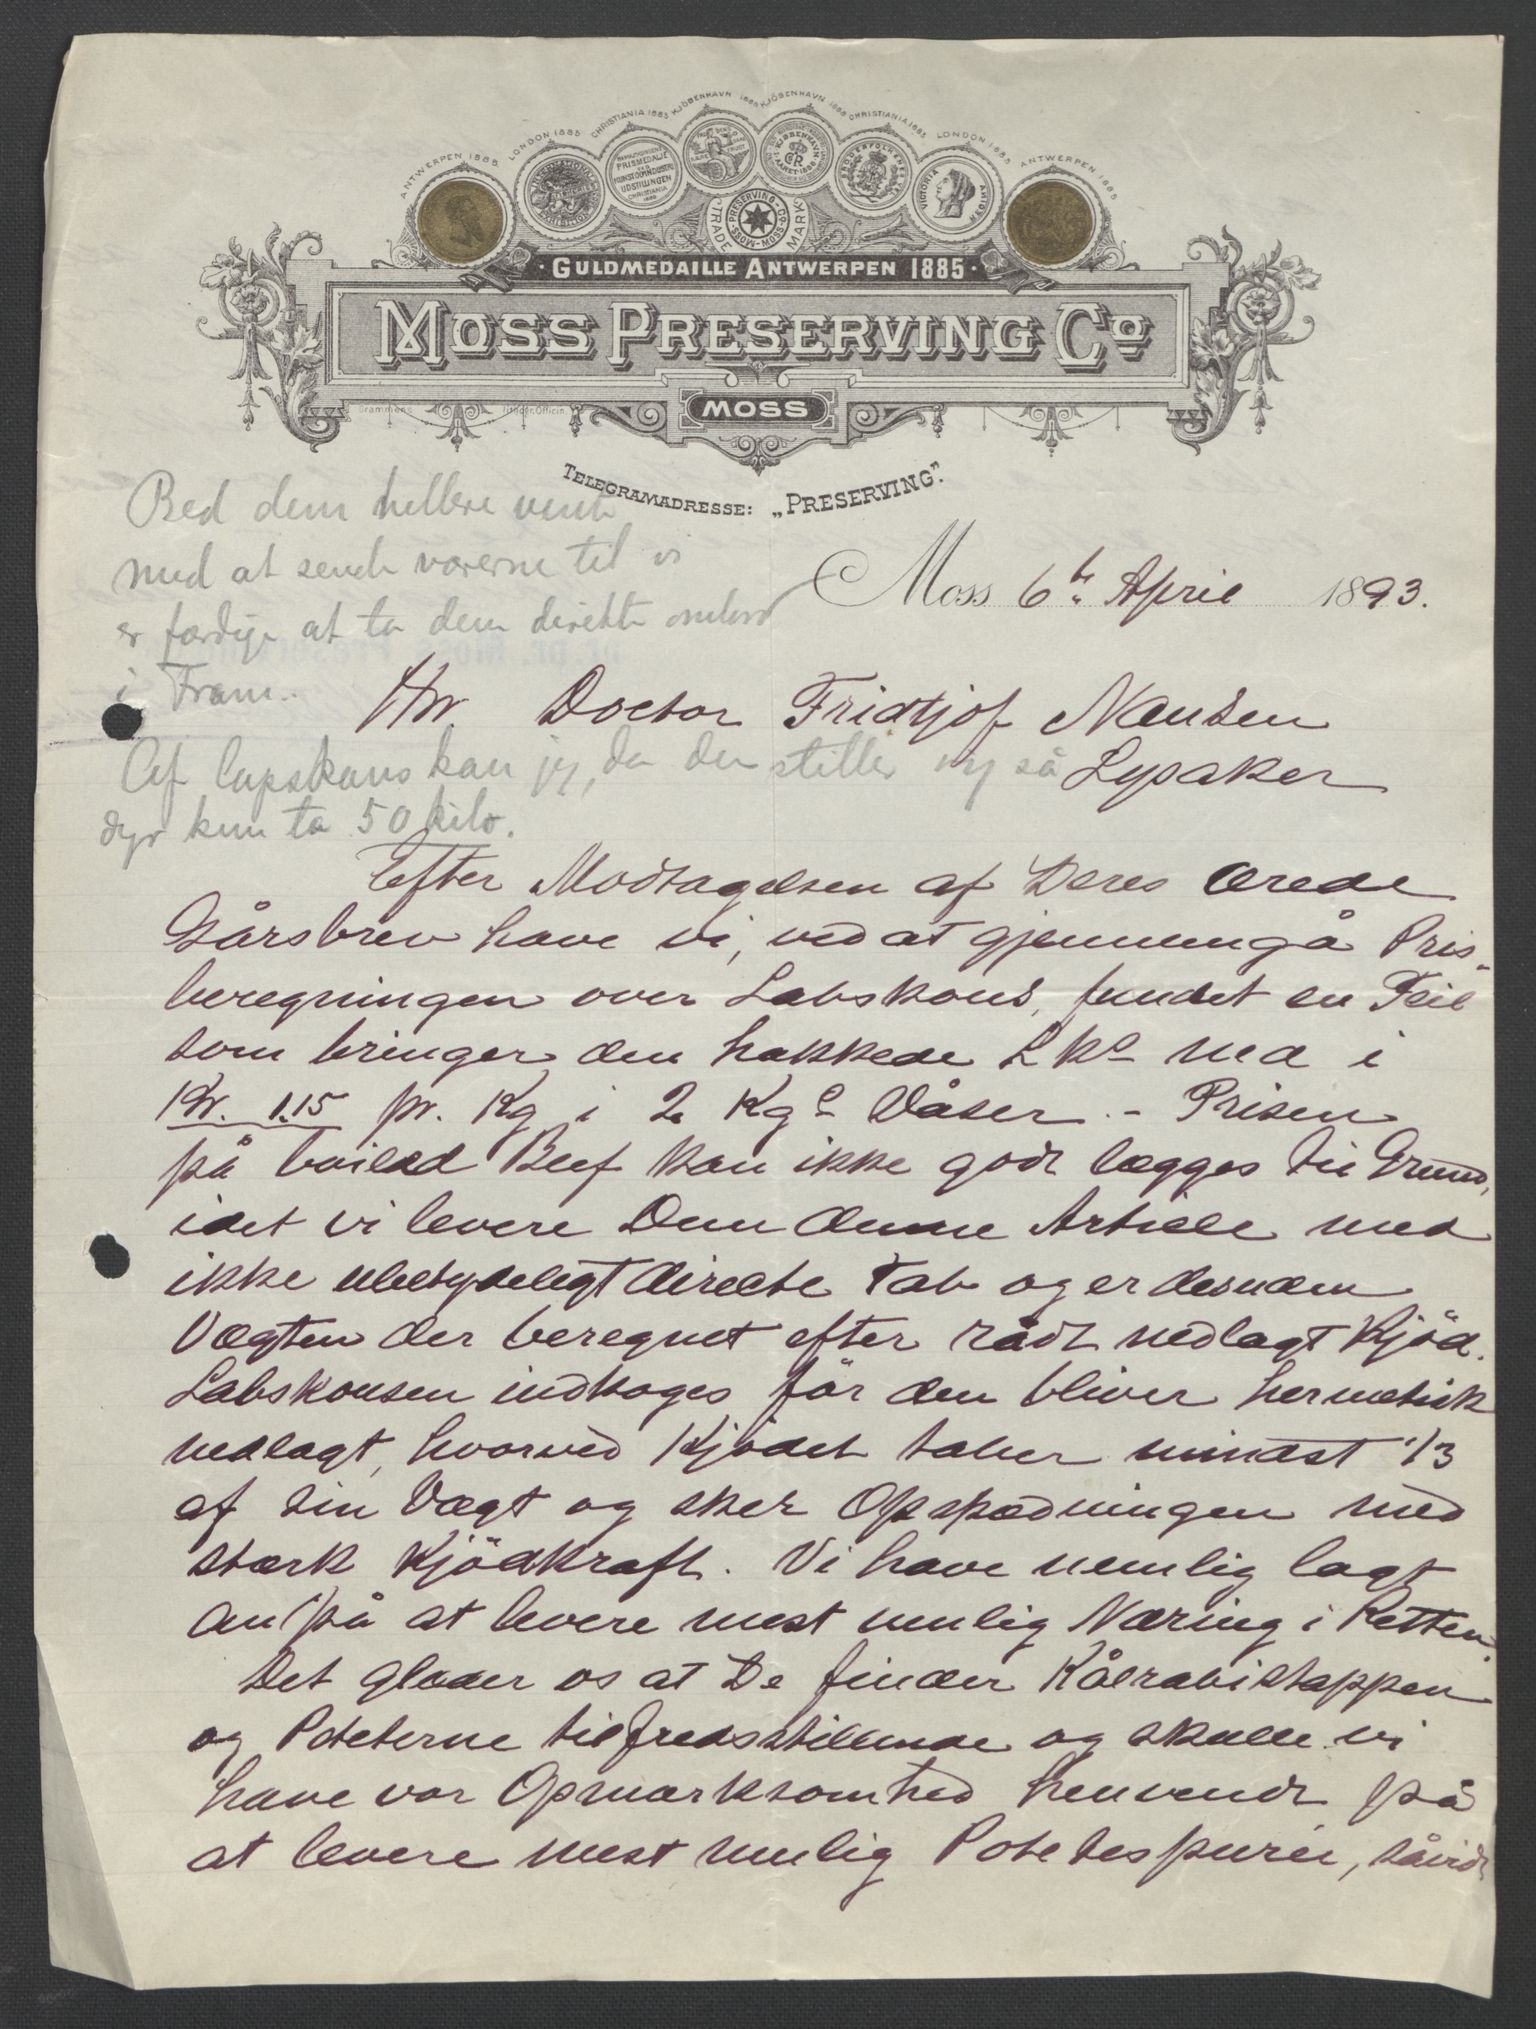 ANTWERPEN 1885. LONDON 1885 CHRISTIANIA 1883 KJÖBENHAVN 1888 KJÖBENHAVN 1888 CHRISTIANIA 1883 LONDON 1885 ANTWERPEN 1885
PRISMEDALJE
KUNST OG INDUSTRI
UDSTILLINGEN
CHRISTIANIA
KJØBENHAVN
AARET 1888
VICTORIA
PRESERVING-Co
MOSS-MOSS
TRADE MARK
GULDMEDAILLE ANTWERPEN 1885
MOSS PRESERVING Co
MOSS
TELEGRAMADRESSE: „PRESERVING".
Bed dem hellere vente
med at sende varerne til vi
er færdige at ta dem direkte ombord
i Fram.
Moss 6te April 1893.
Hr. Doctor Fridtjof Nansen
Lysaker
Af lapskaus kan jeg, da den stiller sig så
dyr kun ta 50 kilo.
Efter Modtagelsen af Deres ærede
Gårsbrev have vi, ved at gjennemgå Pris-
beregningen over Labskous, fundet en Feil
som bringer den hakkede Lks ned i
Kr. 1.15 pr. Kg i 2 Kgs Dåser. - Prisen
på boiled Beef kan ikke godt lægges til Grund,
idet vi levere Dem denne Artikel med
ikke ubetydeligt directe Tab og er desuden
Vægten der beregnet efter rådt nedlagt Kjöd.
Labskousen indkoges för den bliver hermetisk
nedlagt, hvorved Kjödet taber mindst 1/3
af sin Vægt og sker Opspædningen med
stærk Kjödkraft. Vi have nemlig lagt
an på at levere mest mulig Næring i Retten.
Det glæder os at De finder Kålrabistappen
og Poteterne tilfredsstillende og skulle vi
have vor Opmærksomhed henvendt på
at levere mest mulig Potetespurée, såvidt